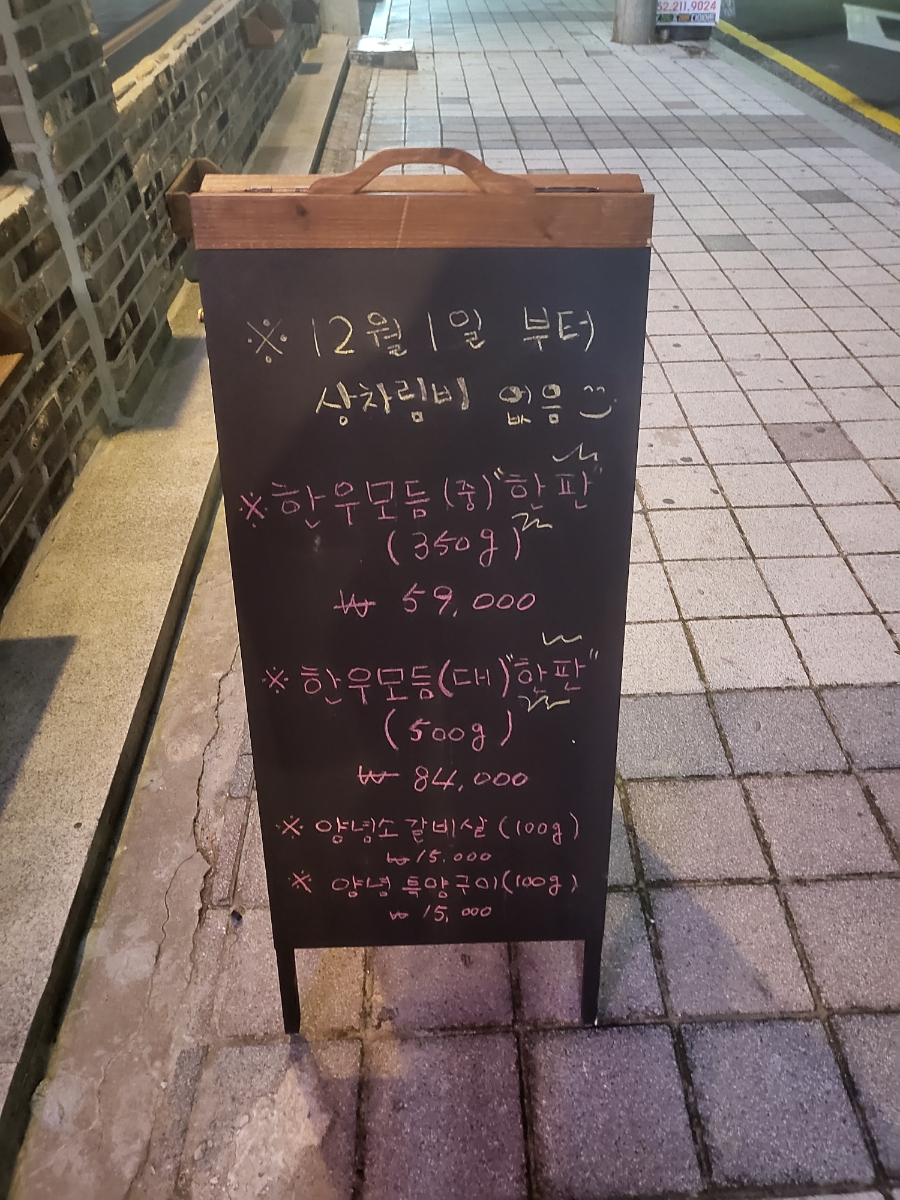 52.211.9024
※ 12월 1일 부터
상차림비 없음
※ 한우모듬(중)"한판"
(350g)
₩ 59,000
※ 한우모듬(대)"한판"
(500g)
₩ 84,000
※ 양념소갈비살(100g)
₩ 15.000
※ 양념 특양구이(100g)
₩ 15,000